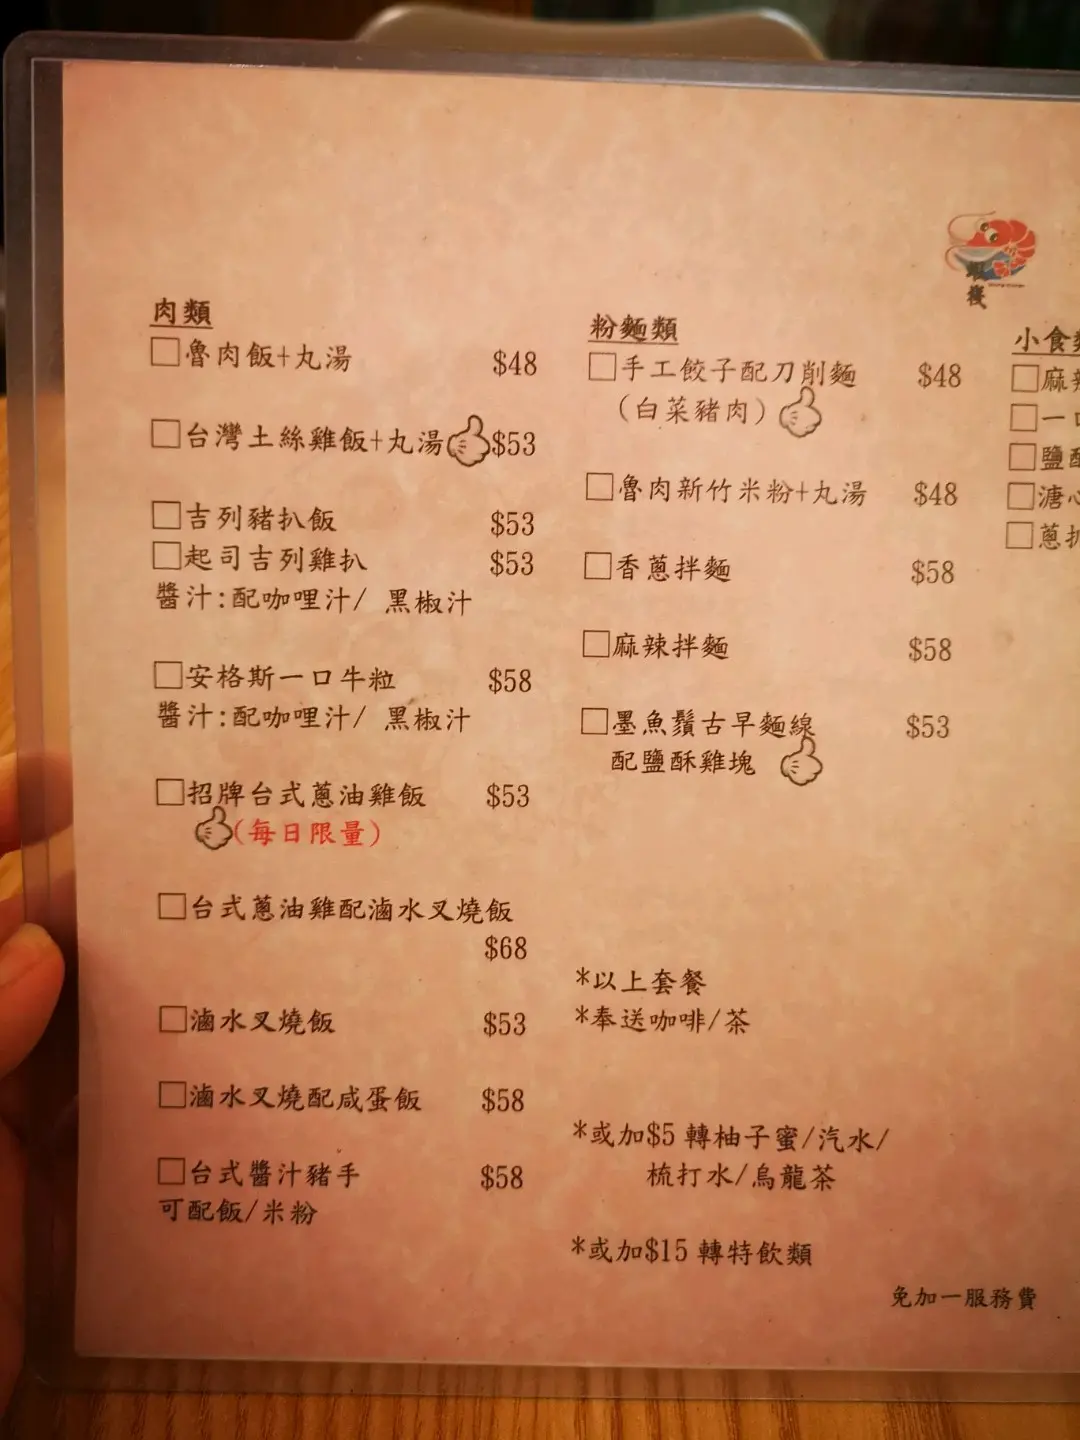 肉類
□魯肉飯+丸湯 $48
□台灣土絲雞飯+丸湯 $53
□吉列豬扒飯 $53
□起司吉列雞扒 $53
醬汁:配咖哩汁/ 黑椒汁
□安格斯一口牛粒 $58
醬汁:配咖哩汁/ 黑椒汁
□招牌台式蔥油雞飯 $53
(每日限量)
□台式蔥油雞配滷水叉燒飯
$68
□滷水叉燒飯 $53
□滷水叉燒配咸蛋飯 $58
□台式醬汁豬手 $58
可配飯/米粉
粉麵類
□手工餃子配刀削麵 $48
(白菜豬肉)
□魯肉新竹米粉+丸湯 $48
□香蔥拌麵 $58
□麻辣拌麵 $58
□墨魚鬚古早麵線 $53
配鹽酥雞塊
*以上套餐
*奉送咖啡/茶
*或加$5 轉柚子蜜/汽水/
梳打水/烏龍茶
*或加$15 轉特飲類
免加一服務費
小食
□麻
□一口
□鹽酥
□溏心
□蔥抓